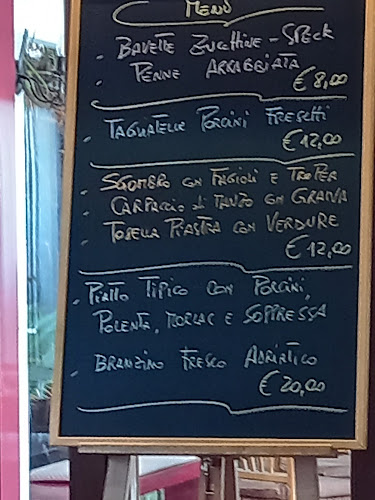 MENÙ
- BAVETTE ZUCCHINE - SPECK
- PENNE ARRABBIATA
€ 8,00
- TAGLIATELLE PORCINI FRESCHI
€ 12,00
- SGOMBRO CON FAGIOLI E TROPEA
- CARPACCIO di MANZO CON GRANA
- TOSELLA PIASTRA CON VERDURE
€ 12,00
- PIATTO TIPICO CON PORCINI,
POLENTA, MORLAC E SOPPRESSA
- BRANZINO FRESCO ADRIATICO
€ 20,00